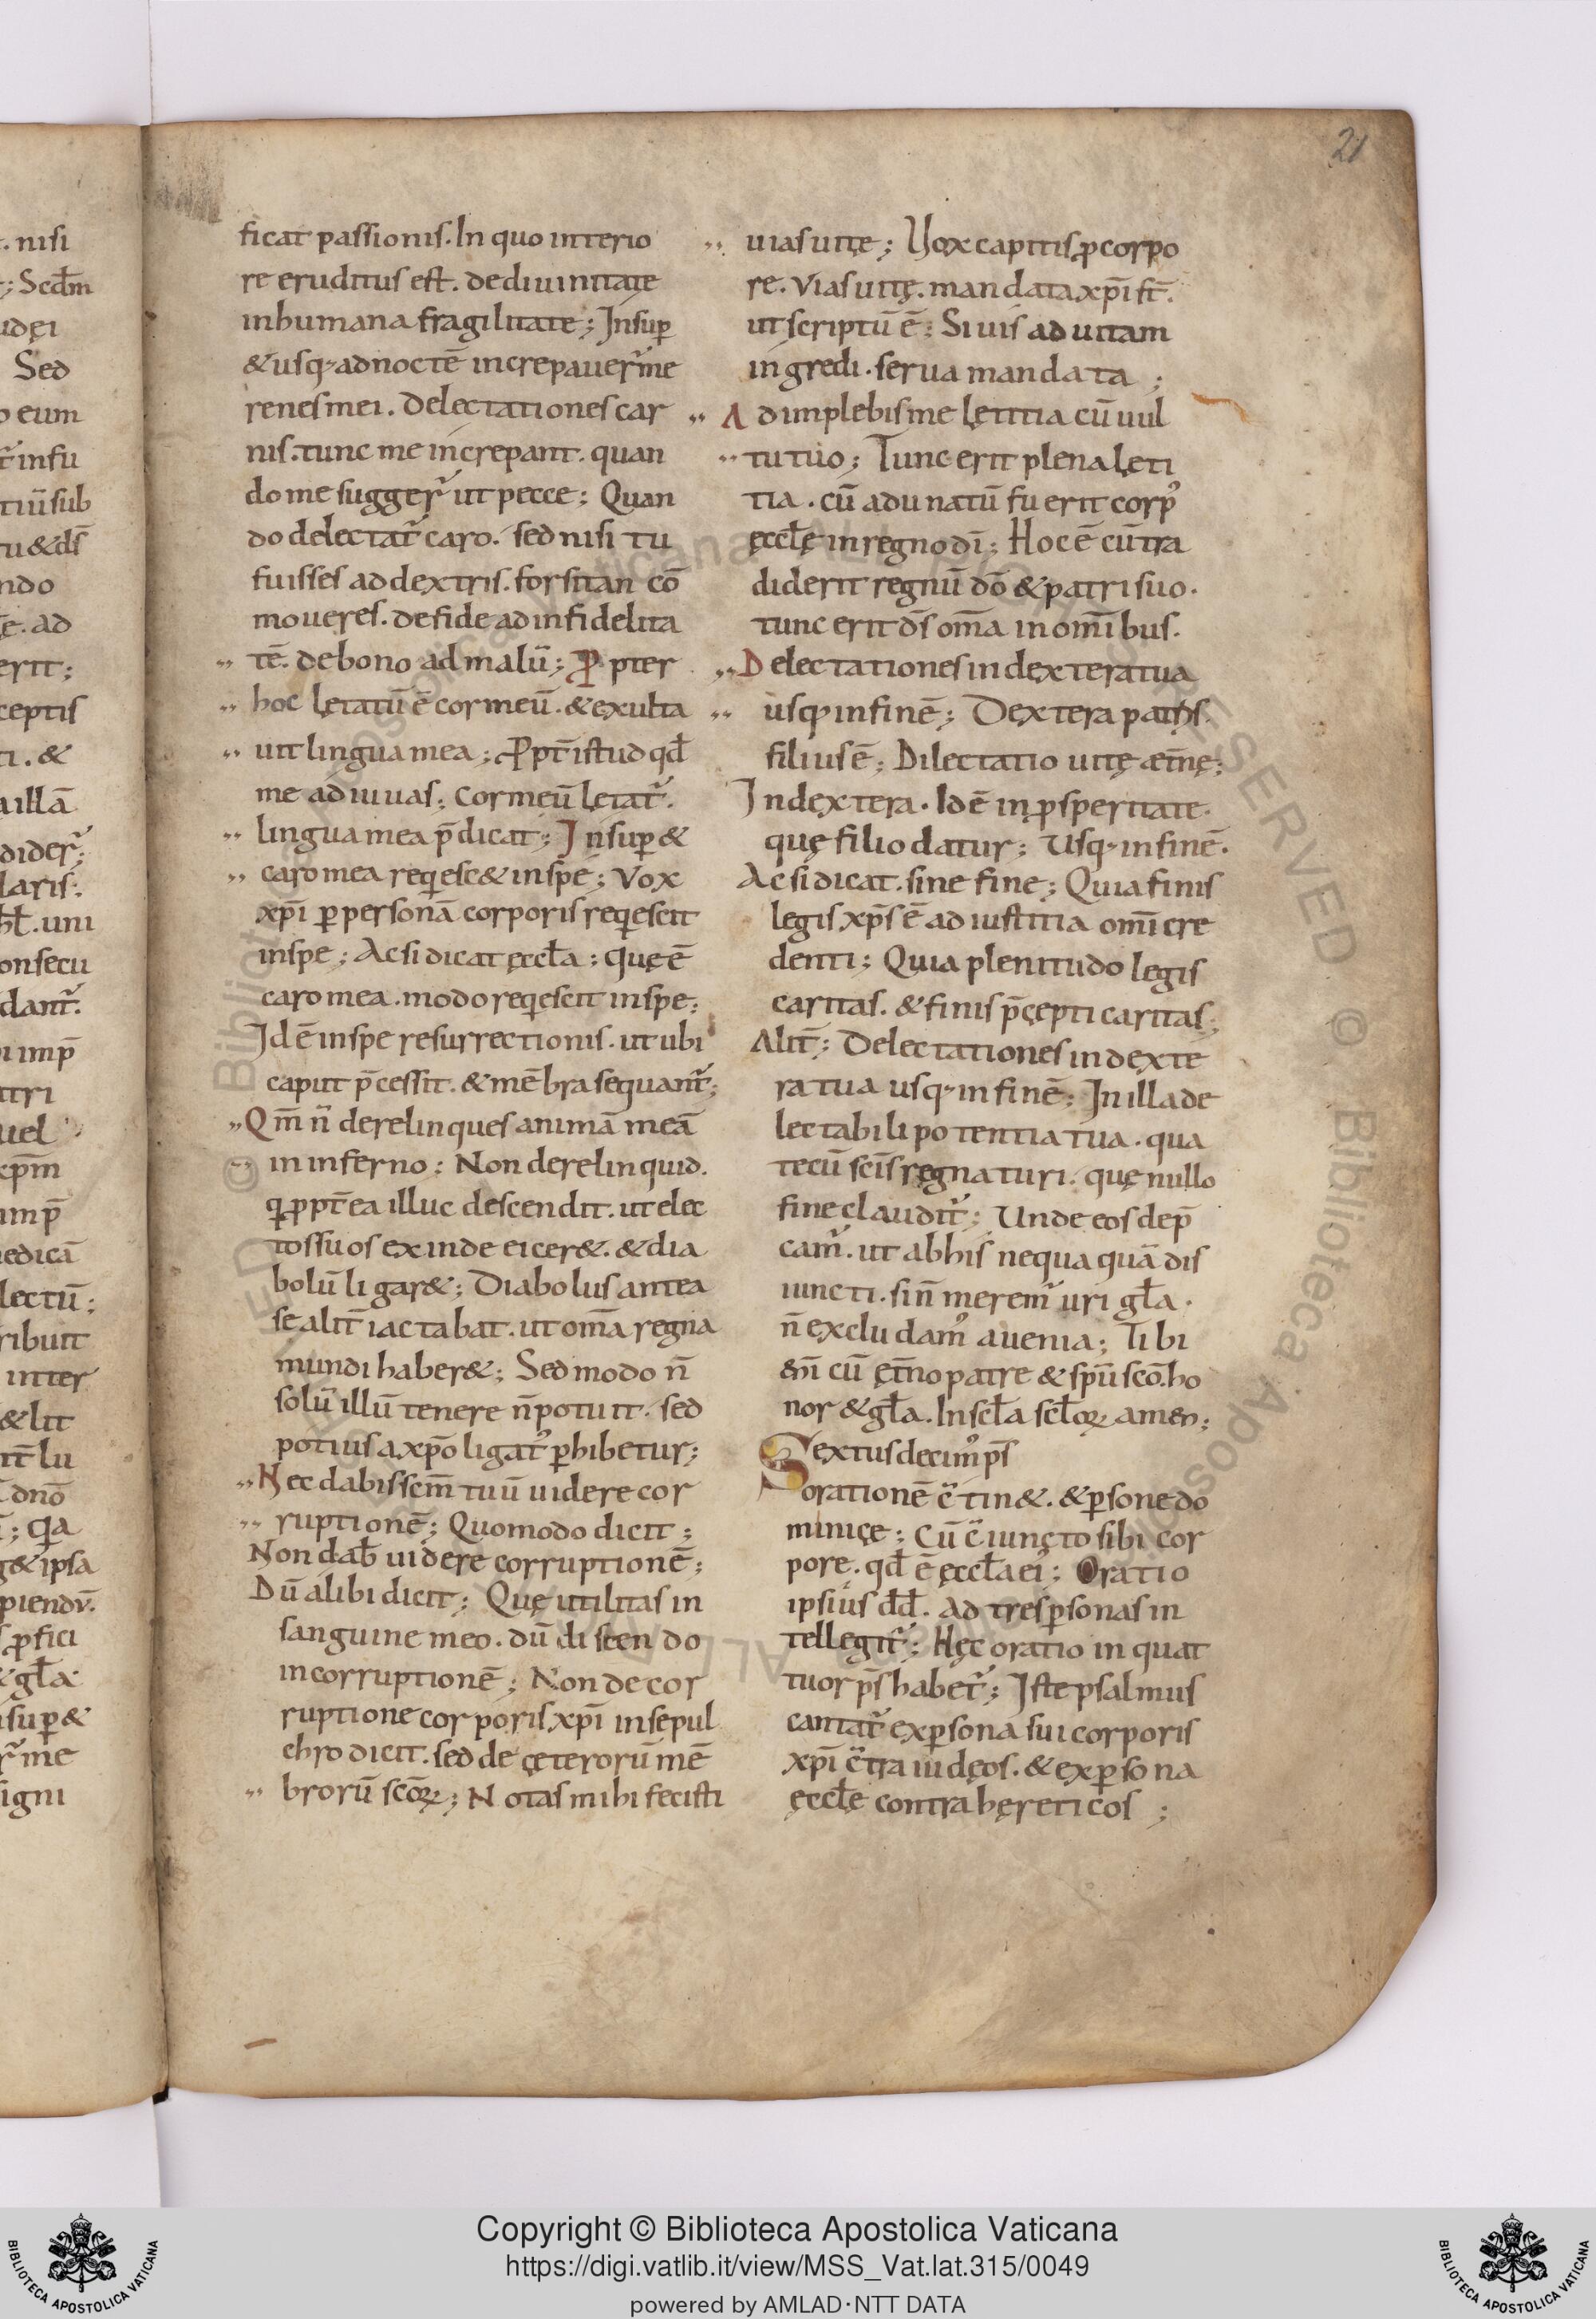 21
ficat passionis. In quo interio
re eruditus est. de diuinitate
in humana fragilitate; Insuꝑ
& usq; ad noctē increpauer̄ me
renes mei. Delectationes car
nis. tunc me increpant. quan
do me sugger̄ ut pecce; Quan
do delectat̄ caro. sed nisi tu
fuisses ad dextris. forsitan cō
moueres. de fide ad infidelita
tē. de bono ad malū; Ꝓpter
hoc lętatū ē cor meū. & exulta
uit lingua mea; Ꝓpt̄ istud qd̄
me adiuuas; Cor meū lętat̄.
lingua mea p̄dicat; Insuꝑ &
caro mea reqiesc& in spe; Vox
xp̄i ꝑ personā corporis reqiescit
in spe; Ac si dicat ęccl̄a; Quę ē
caro mea. modo reqiescit in spe;
Id ē in spe resurrectionis. ut ubi
caput p̄cessit. & mēbra sequant̄;
Qm̄ n̄ derelinques animā meā
in inferno; Non derelinquid.
q ꝓpt̄ea illuc descendit. ut elec
tos suos exinde eicer&. & dia
bolū ligar&; Diabolus antea
se alit̄ iactabat. ut om̄a regna
mundi haber&; Sed modo n̄
solū illū tenere n̄ potuit. sed
potius a xp̄o ligat᾽ ꝑhibetur;
Nec dabis sc̄m tuū uidere cor
ruptionē; Quomodo dicit;
Non dab̄ uidere corruptionē;
Dū alibi dicit; Quę utilitas in
sanguine meo. dū discendo
in corruptionē; Non de cor
ruptione corporis xp̄i in sepul
chro dicit. sed de ceterorū mē
brorū sc̄oꝝ; Notas mihi fecisti
uias uitę; Uox capitis ꝓ corpo
re. Vias uitę. mandata xp̄i st̄.
ut scriptū ē; Si uis ad uitam
ingredi. serua mandata;
Adimplebis me lętitia cū uul
tu tuo; Tunc erit plena lęti
tia. cū adunatū fuerit corp᾽
ęccl̄ę in regno dī; Hoc ē cū tra
diderit regnū dō & patri suo.
tunc erit d̄s om̄a in om̄ibus.
Delectationes in dextera tua
usq; in finē; Dextera patris.
filius ē; Dilectatio uitę ęt̄nę;
In dextera. Id ē in ꝓsperitate.
quę filio datur; Usq; in finē.
Ac si dicat. sine fine; Quia finis
legis xp̄s ē ad iustitia om̄i cre
denti; Quia plenitudo legis
caritas. & finis p̄cepti caritas;
Alit̄; Delectationes in dexte
ra tua usq; in finē; In illa de
lectabili potentia tua. qua
tecū sc̄is regnaturi. quę nullo
fine claudit̄; Unde eos dep̄
cam᾽. ut ab his nequaquā dis
iuncti. si n̄ merem᾽ uri gl̄a.
n̄ excludam᾽ a uenia; Tibi
eni cū ęt̄no patre & sp̄u sc̄o. ho
nor & gl̄a. In scl̄a scl̄oꝝ amen;
Sextusdecim᾽ ps̄
orationē c̄tin&. & ꝑsonę do
minicę; Cū c̄iuncto sibi cor
pore. qd̄ ē ęccl̄a ei᾽; Oratio
ipsius dd̄. ad tres ꝑsonas in
tellegit̄; Hęc oratio in quat
tuor ps̄ habet̄; Iste psalmus
cantat̄ ex ꝑsona sui corporis
xp̄i c̄tra iudęos. & ex ꝑsona
ęccl̄ę contra hęreticos;
Copyright © Biblioteca Apostolica Vaticana
https://digi.vatlib.it/view/MSS_Vat.lat.315/0049
powered by AMLAD·NTT DATA
BIBLIOTECA APOSTOLICA VATICANA
BIBLIOTECA APOSTOLICA VATICANA